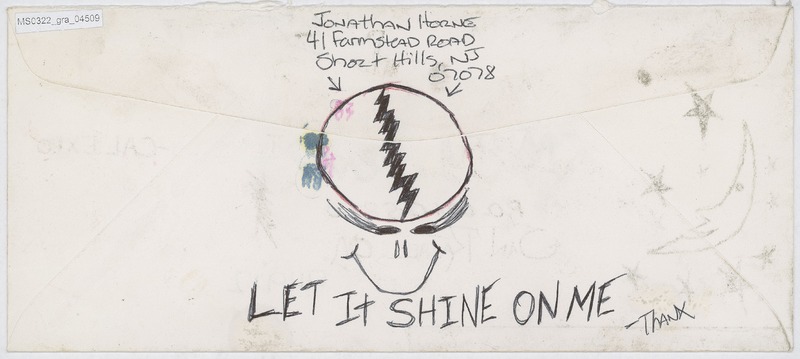 MS0322_gra_04509
Jonathan Horne
41 Farmstead Road
Short Hills, NJ
07078
LET It SHINE ON ME
-Thanx